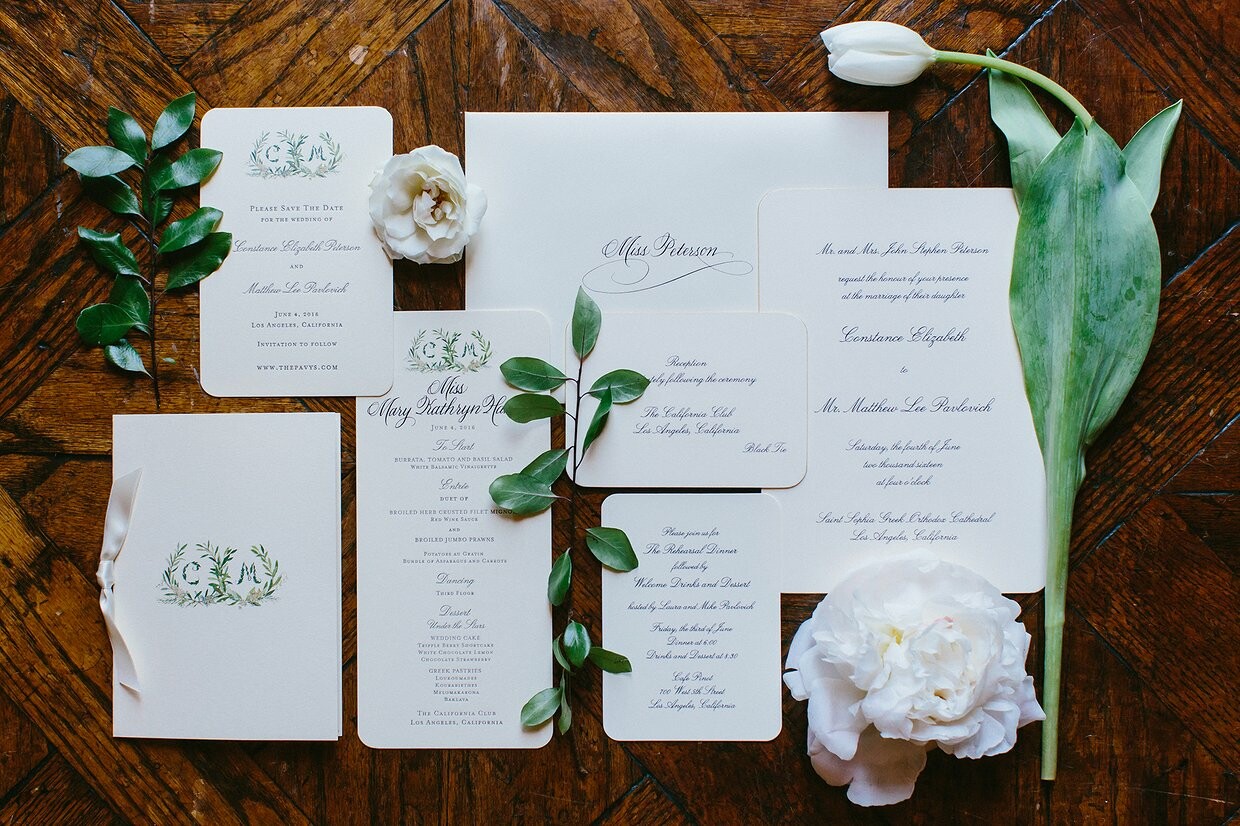 C M
PLEASE SAVE THE DATE
FOR THE WEDDING OF
Constance Elizabeth Peterson
AND
Matthew Lee Pavlovich
JUNE 4, 2016
LOS ANGELES, CALIFORNIA
INVITATION TO FOLLOW
WWW.THEPAVYS.COM
C M
C M
Miss
Mary Kathryn Ha
JUNE 4, 2016
To Start
BURRATA, TOMATO AND BASIL SALAD
WHITE BALSAMIC VINAIGRETTE
Entrée
DUET OF
BROILED HERB CRUSTED FILET MIGNO
RED WINE SAUCE
AND
BROILED JUMBO PRAWNS
POTATOES AU GRATIN
BUNDLE OF ASPARAGUS AND CARROTS
Dancing
THIRD FLOOR
Dessert
Under the Stars
WEDDING CAKE
TRIPPLE BERRY SHORTCAKE
WHITE CHOCOLATE LEMON
CHOCOLATE STRAWBERRY
GREEK PASTRIES
LOUKOUMADES
KOURABIETHES
MELOMAKARONA
BAKLAVA
THE CALIFORNIA CLUB
LOS ANGELES, CALIFORNIA
Miss Peterson
Reception
tely following the ceremony
The California Club
Los Angeles, California
Black Tie
Please join us for
The Rehearsal Dinner
followed by
Welcome Drinks and Dessert
hosted by Laura and Mike Pavlovich
Friday, the third of June
Dinner at 6:00
Drinks and Dessert at 8:30
Cafe Pinot
700 West 5th Street
Los Angeles, California
Mr. and Mrs. John Stephen Peterson
request the honour of your presence
at the marriage of their daughter
Constance Elizabeth
to
Mr. Matthew Lee Pavlovich
Saturday, the fourth of June
two thousand sixteen
at four o'clock
Saint Sophia Greek Orthodox Cathedral
Los Angeles, California